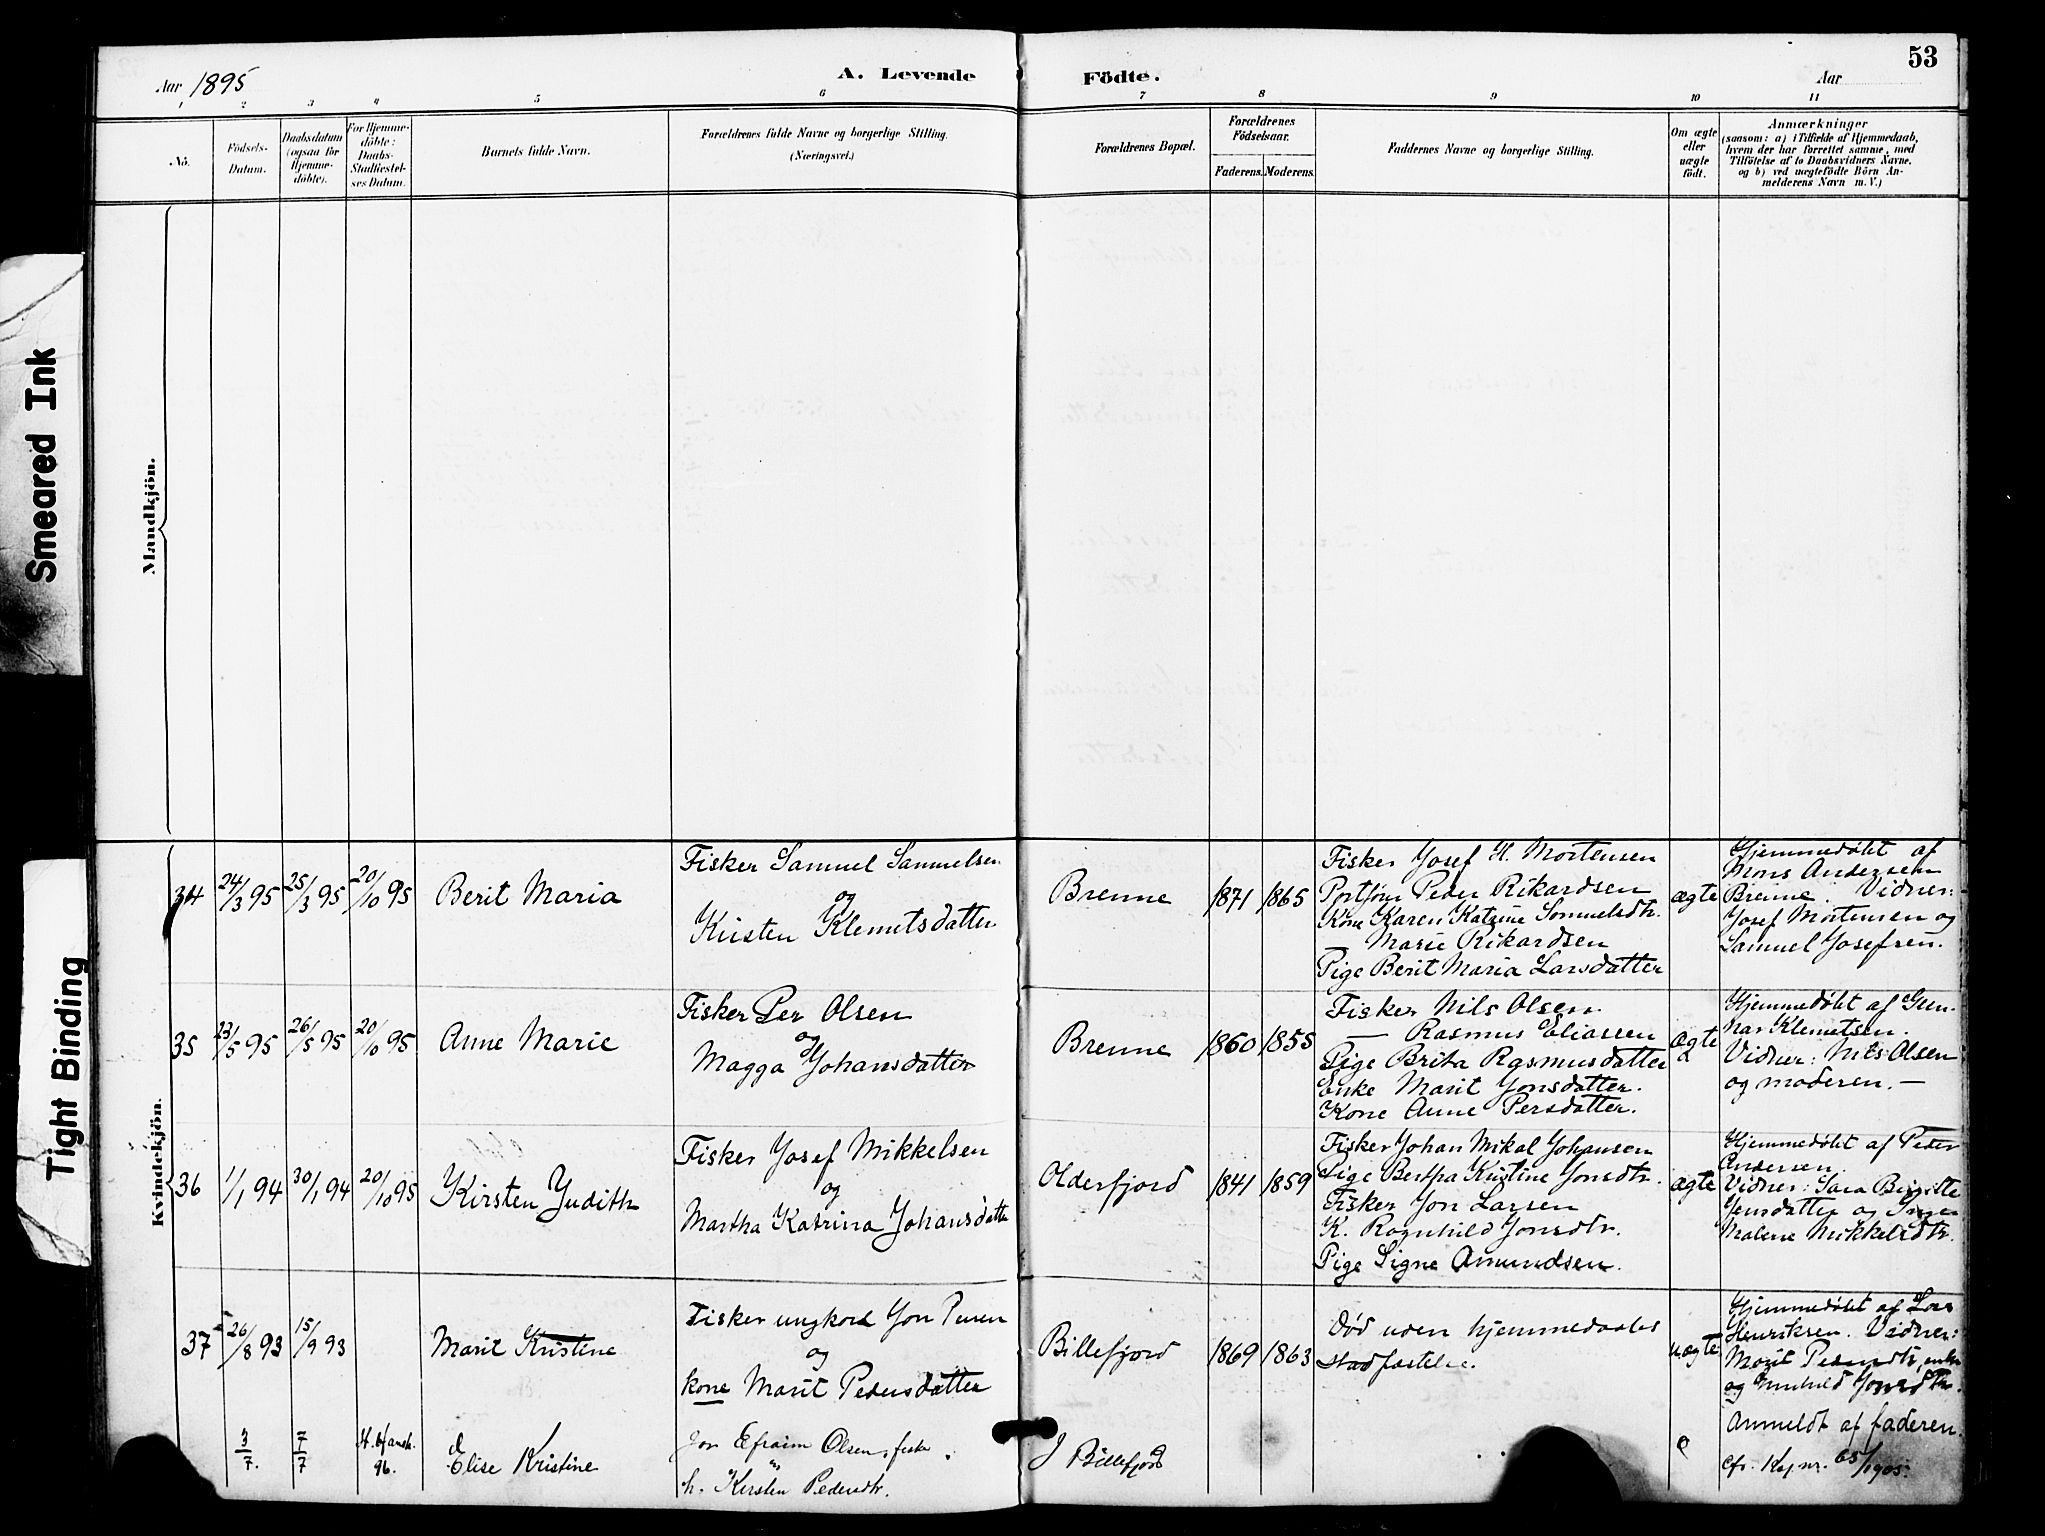 53
Aar 1895
A. Levende
Födte.
Aar
1 2 3 4 5 6 7 8 9 10 11
No.
Födsels-
Datum.
Daabsdatum
(ogsaa for
Hjemme-
döbte).
For Hjemme-
döbte:
Daabs-
Stadfæstel-
ses Datum.
Barnets fulde Navn.
Forældrenes fulde Navne og borgerlige Stilling.
(Næringsvei.)
Forældrenes Bopæl.
Forældrenes
Födselsaar.
Faderens.
Moderens.
Faddernes Navne og borgerlige Stilling.
Om ægte
eller
uægte
födt.
Anmærkninger
(saasom: a) i Tilfælde af Hjemmedaab,
hvem der har forrettet samme, med
Tilföielse af to Daabsvidners Navne.
og b) ved uægtefödte Börn An-
melderens Navn m. V.)
Smeared Ink
Tight Binding
Mandkjön.
Kvindekjön.
34
24/3 95
25/3 95
20/10 95
Berit Maria
Fisker Samuel Samuelsen
og
Kirsten Klemetsdatter
Brenne
1871
1865
Fisker Josef H. Mortensen
Peder Rikardsen
Kone Karen Katrine Samuelsdtr.
— Marie Rikardsen
Pige Berit Maria Larsdatter
ægte
Hjemmedøbt af
Mons Andersen
Brenne. Vidner:
Josef Mortensen og
Samuel Josefsen.
35
23/5 95
26/5 95
20/10 95
Anne Marie
Fisker Per Olsen
og
Magga Johansdatter
Brenne
1860
1855
Fisker Nils Olsen
— Rasmus Eliassen
Pige Brita Rasmusdatter
Enke Marit Jonsdatter.
Kone Anne Persdatter.
ægte
Hjemmedøbt af Gun-
nar Klemetsen.
Vidner: Nils Olsen
og moderen. —
36
1/1 94
30/1 94
20/10 95
Kirsten Judith
Fisker Josef Mikkelsen
og
Martha Katrina Johansdatter
Olderfjord
1841
1859
Fisker Johan Mikal Johansen
Pige Bertha Kristine Jonsdtr.
Fisker Jon Larsen
K. Ragnhild Jonsdtr.
Pige Signe Amundsen.
ægte
Hjemmedøbt af Peder
Andersen.
Vidner: Sara Birgitte
Jensdatter og Inger
Malene Mikkelsdtr.
37
26/8 93
15/9 93
Marit Kristine
Fisker ungkarl Jon Persen
og
kone Marit Pedersdatter
Billefjord
1869
1863
Død uden hjemmedaabs
stadfæstelse.
uægte
Hjemmedøbt af Lars
Henriksen. Vidner:
Marit Pedersdtr, enke
og Gunhild Jonsdtr.
Anmeldt af faderen.
3/7.
7/7
96.
Elise Kristine
Jon Efraim Olsen, fisker
h. Kirsten Pedersdtr.
Billefjord
e
cfr. Kopnr. 65/1905.